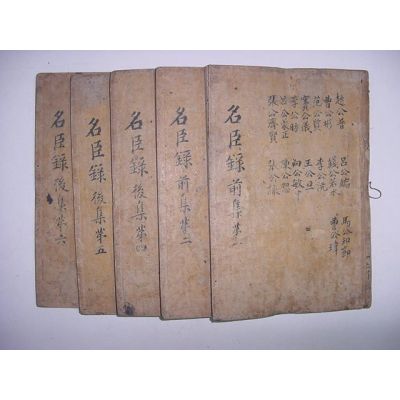 趙公普
曹公彬
范公質
竇公儀
李公昉
呂公蒙正
張公齊賢
呂公端
錢公若水
李公沆
王公旦
向公敏中
陳公恕
張公詠
馬公知節
曹公瑋
名臣錄 前集苐一
名臣錄 前集苐二
名臣錄 後集苐四
名臣錄 後集苐五
名臣錄 後集苐六